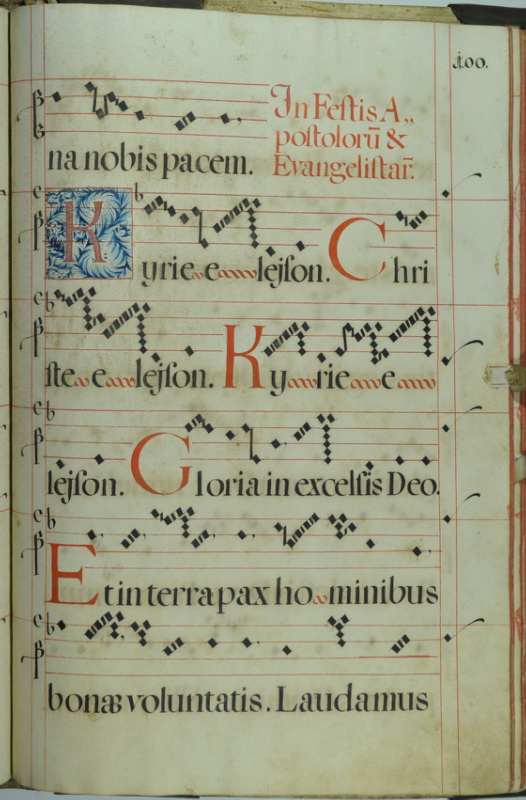 100.
In Festis A„
postolorū &
Evangelistar̄.
na nobis pacem.
Kyrie e lejson. Chri
ste e lejson. Kyrie e
lejson. Gloria in excelsis Deo.
Et in terra pax hominibus
bonæ voluntatis. Laudamus